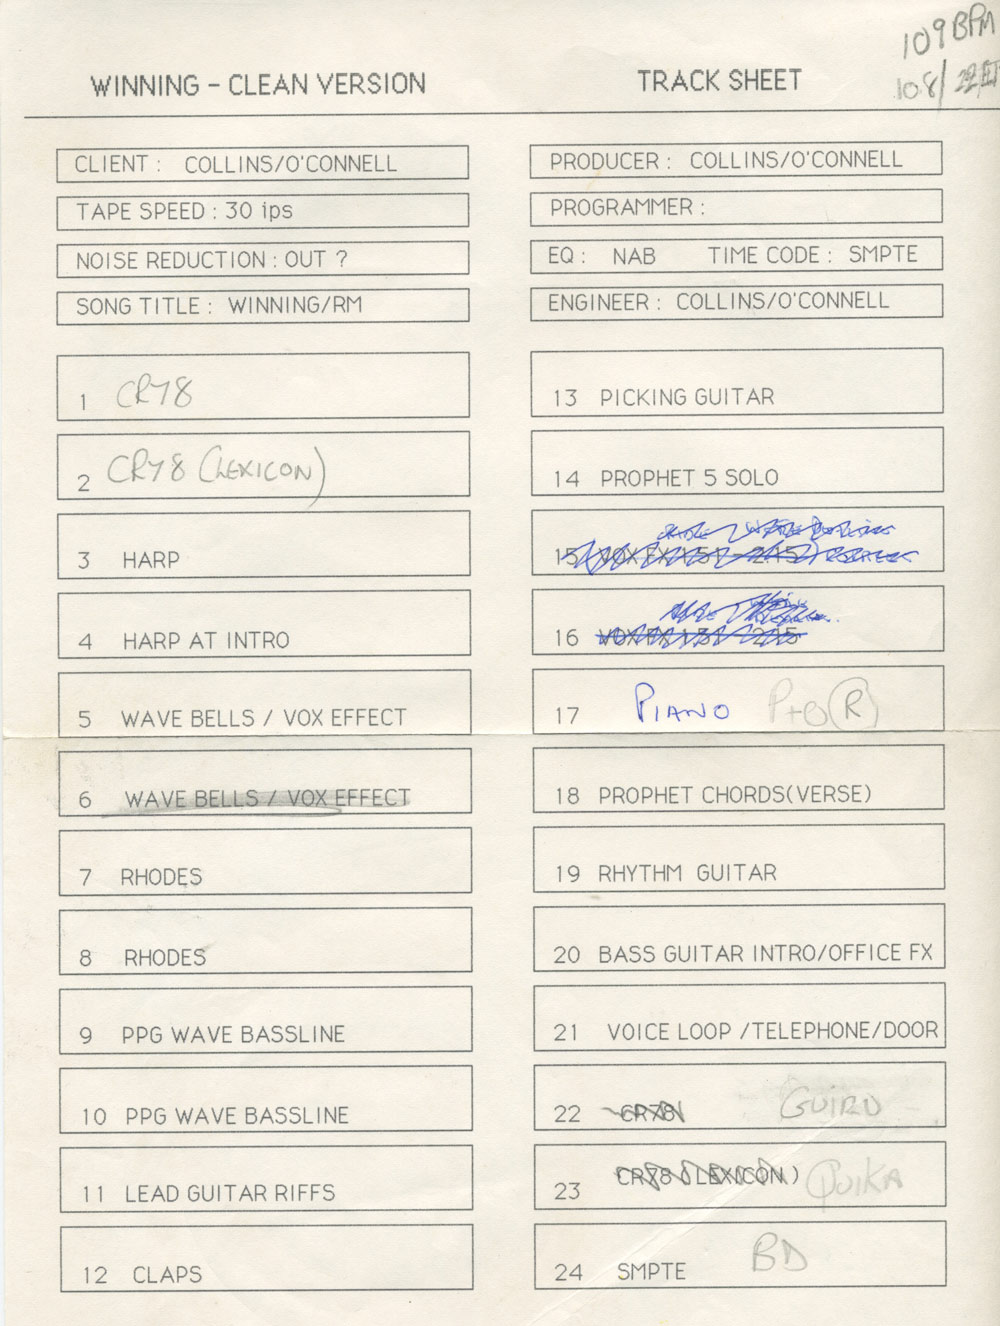 109 BPM
108/
WINNING - CLEAN VERSION
TRACK SHEET
CLIENT : COLLINS/O'CONNELL
TAPE SPEED : 30 ips
NOISE REDUCTION : OUT ?
SONG TITLE : WINNING/RM
PRODUCER : COLLINS/O'CONNELL
PROGRAMMER :
EQ : NAB TIME CODE : SMPTE
ENGINEER : COLLINS/O'CONNELL
1 CR78
2 CR78 (LEXICON)
3 HARP
4 HARP AT INTRO
5 WAVE BELLS / VOX EFFECT
6 WAVE BELLS / VOX EFFECT
7 RHODES
8 RHODES
9 PPG WAVE BASSLINE
10 PPG WAVE BASSLINE
11 LEAD GUITAR RIFFS
12 CLAPS
13 PICKING GUITAR
14 PROPHET 5 SOLO
15
16
17 PIANO (R)
18 PROPHET CHORDS(VERSE)
19 RHYTHM GUITAR
20 BASS GUITAR INTRO/OFFICE FX
21 VOICE LOOP /TELEPHONE/DOOR
22 CR78 GUIRO
23 CR78 (LEXICON) QUIKA
24 SMPTE BD